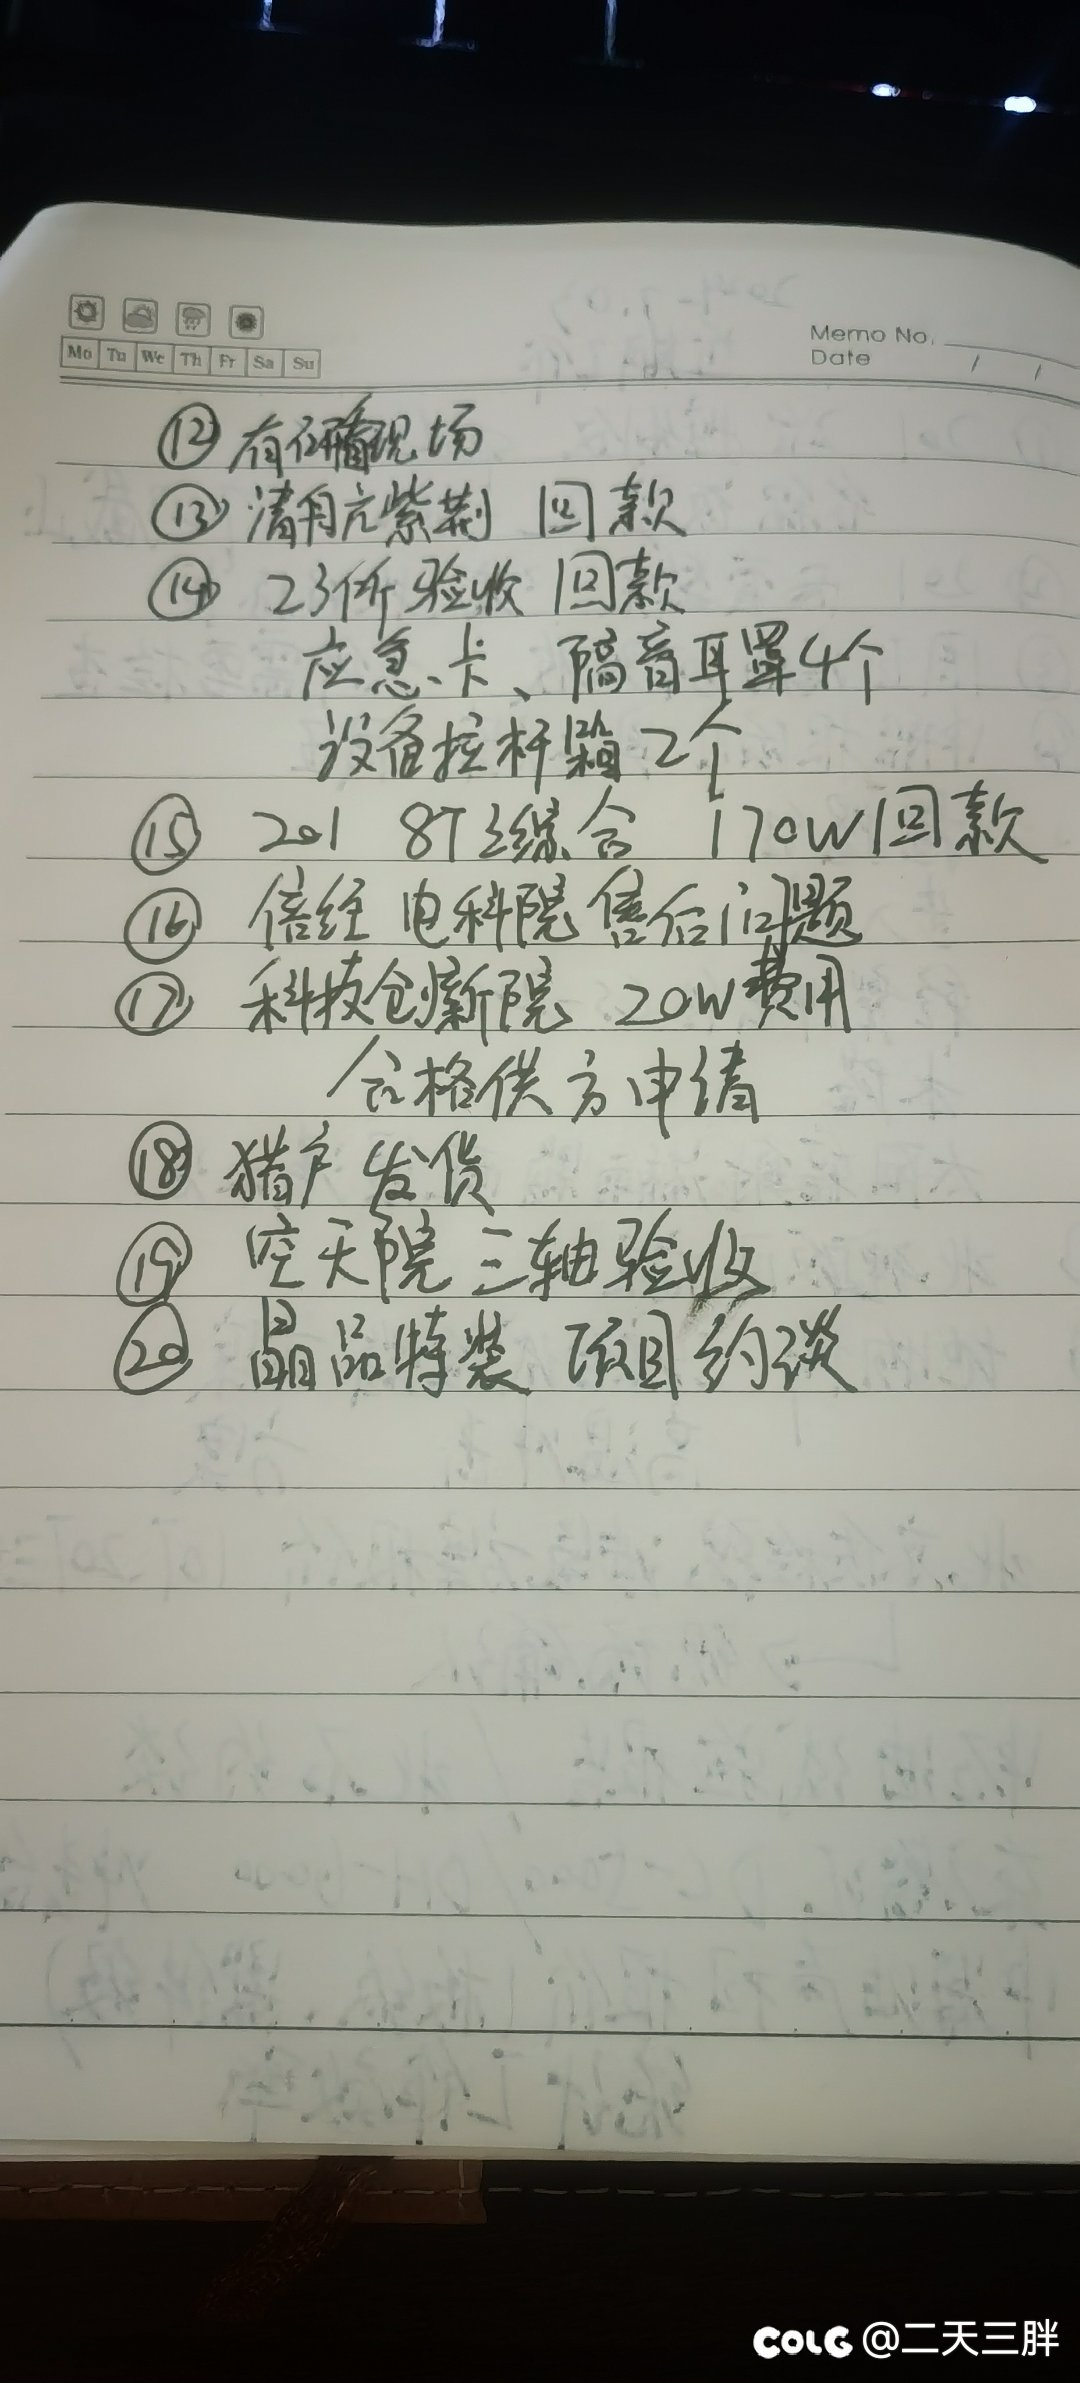 Mo Tu We Th Fr Sa Su
Memo No.
Date / /
⑫ 有研看现场
⑬ 清自亢紫荆 回款
⑭ 23所验收 回款
应急卡、隔音耳罩4个
设备拉杆箱2个
⑮ 201 8T 综合 170W回款
⑯ 倍经 电科院售后问题
⑰ 科技创新院 20W费用
合格供方申请
⑱ 猎户发货
⑲ 空天院三轴验收
⑳ 晶品特装 项目约谈
COLG @二天三胖